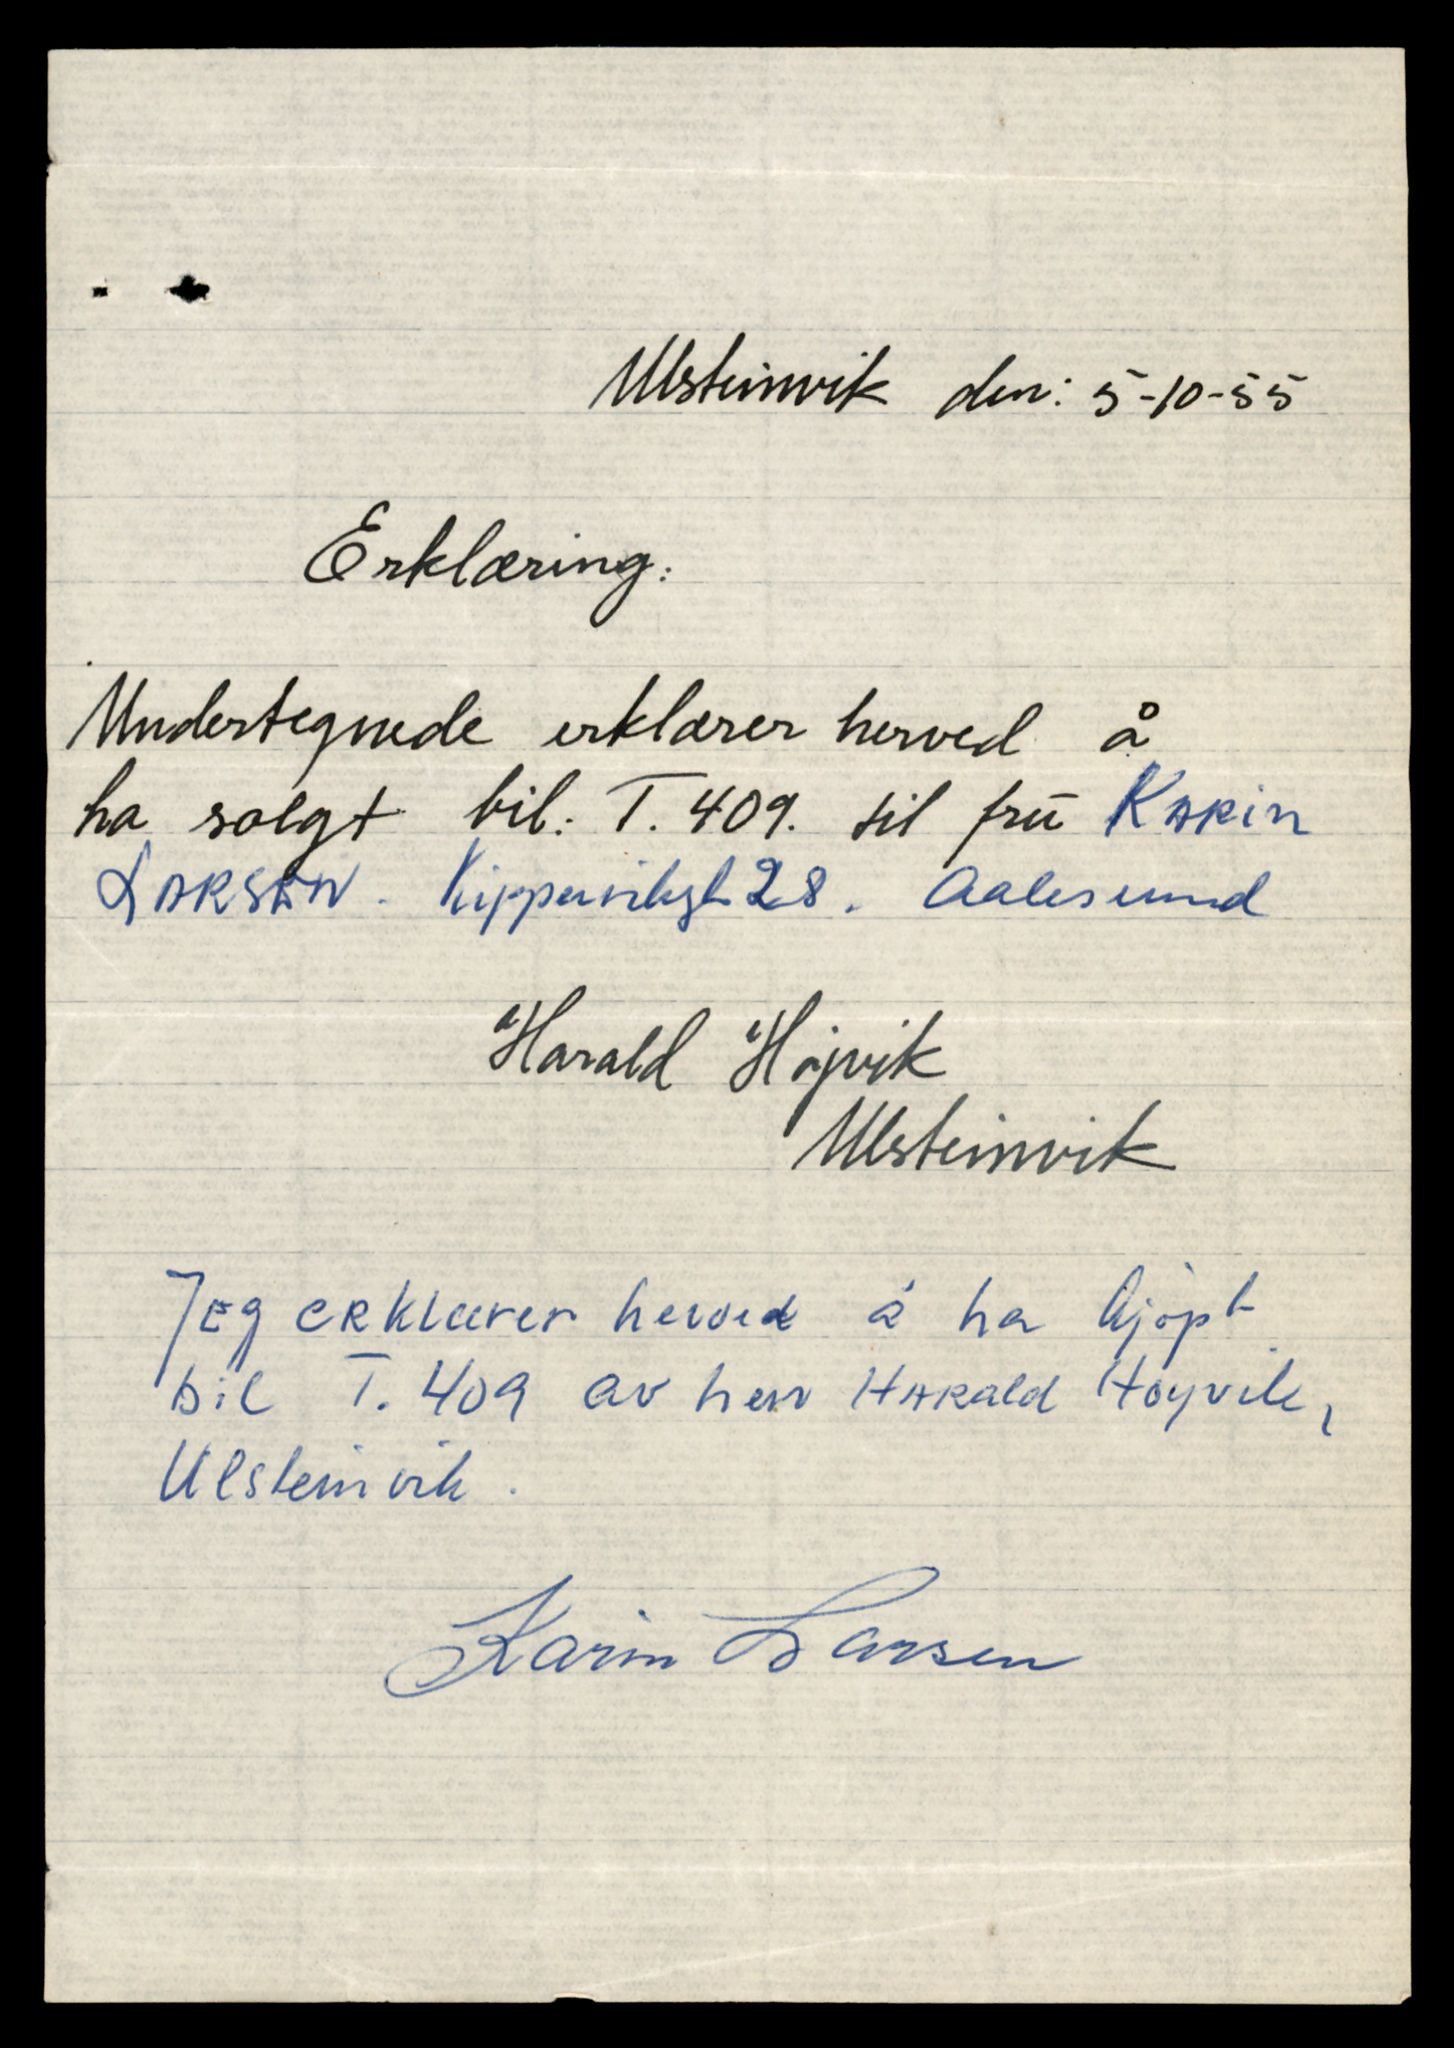 Ulsteinvik den: 5-10-55
Erklæring:
Undertegnede erklærer herved å
ha solgt bil: T. 409. til frū KARin
LARSEN. Kippervikgt 28. Aalesund
Harald Højvik
Ulsteinvik
JEg ERKlærer herved å ha kjøpt
bil T. 409 av herr HARald Høyvik,
Ulsteinvik.
Karin Larsen